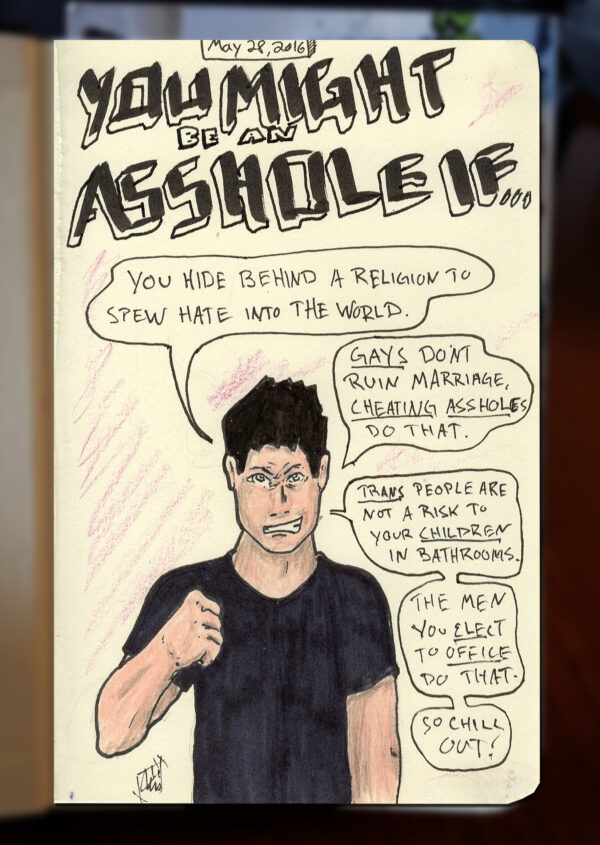 May 28, 2016
YOU MIGHT
BE AN
ASSHOLE IF...
YOU HIDE BEHIND A RELIGION TO
SPEW HATE INTO THE WORLD.
GAYS DON'T
RUIN MARRIAGE,
CHEATING ASSHOLES
DO THAT.
TRANS PEOPLE ARE
NOT A RISK TO
YOUR CHILDREN
IN BATHROOMS.
THE MEN
YOU ELECT
TO OFFICE
DO THAT.
SO CHILL
OUT!